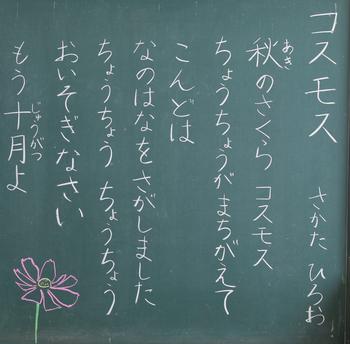 コスモス
さかた ひろお
秋のさくら コスモス
あき
ちょうちょうがまちがえて
こんどは
なのはなをさがしました
ちょうちょう ちょうちょう
おいそぎなさい
もう十月よ
じゅうがつ